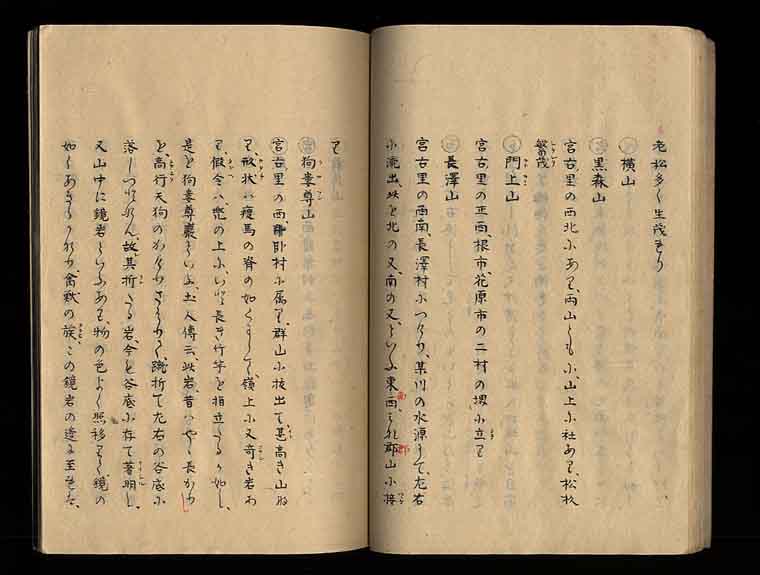 老松多く生茂せり
横山
黒森山
宮古里の西北にあり、両山とも小山上に社あり、松杦
繁茂
門上山
宮古里の正西、根市、花原市の二村の堺に立り
長澤山
宮古里の西南、長澤村につゝき、某川の水源にて、左右
に流出、此を北の又、南の又といふ、東西、郡山に接
り
狗賓尊山
宮古里の西、村に属り、群山に抜出て、甚高き山な
り、形状ハ痩馬の脊の如くにして、嶺上に又奇き岩あ
り、假令ハ、兜の上に、いと長き竹竿を指立たるか如し、
是を狗賓尊巖といふ、土人傳云、此岩、昔ハいや長かり
を高行天狗の、蹴折て左右の谷底に
落しつ、故、其折たる岩、今も谷底に存て著明し、
又山中に鏡岩といふあり、物の色よく照移りて、鏡の
如くあきらかなり、禽獣の族、この鏡岩の邊に至れ